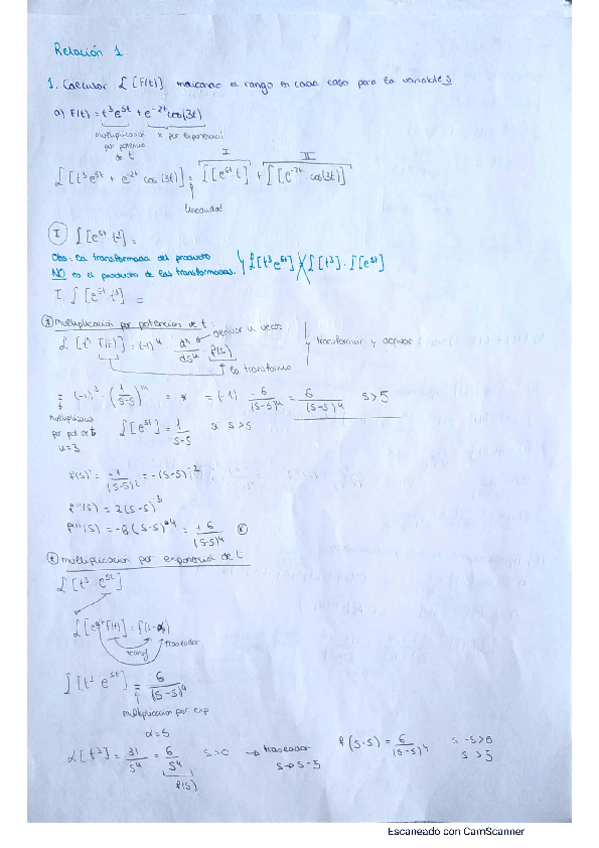 Relación 1
1. Calcular L[F(t)] indicando el rango en cada caso para la variable s
a) F(t) = t³e^{5t} + e^{-2t}cos(3t)
multiplicación por potencia de t
x por exponencial
I
II
L[t³e^{5t} + e^{-2t} cos(3t)] = L[e^{5t} t] + L[e^{-2t} · cos(3t)]
linealidad
I L[e^{5t} t³] =
Obs: la transformada del producto
NO es el producto de las transformadas.
L[t³e^{5t}] ≠ L[t³] · L[e^{5t}]
I. L[e^{5t} t³] =
* multiplicación por potencias de t
L[tⁿ F(t)] = (-1)ⁿ · dⁿ/dsⁿ f(s)
derivar n veces
transformar y derivar
la transformo
= (-1)³ · (1/(s-5))''' = * = (-1) -6/(s-5)⁴ = 6/(s-5)⁴ s>5
multiplicación
por pot de t
n=3
L[e^{5t}] = 1/(s-5) si s>5
f'(s) = -1/(s-5)² = -(s-5)^{-2}
f''(s) = 2(s-5)^{-3}
f'''(s) = -6(s-5)^{-4} = -6/(s-5)⁴
* multiplicación por exponencial de t
L[t³ e^{5t}]
L[e^{αt}F(t)] = f(s-α)
transf
trasladar
L[t³ e^{5t}] = 6/(s-5)⁴
multiplicación por exp
α=5
L[t³] = 3!/s⁴ = 6/s⁴ s>0 → trasladar s→s-5
f(s)
f(s-5) = 6/(s-5)⁴
s-5>0
s>5
Escaneado con CamScanner